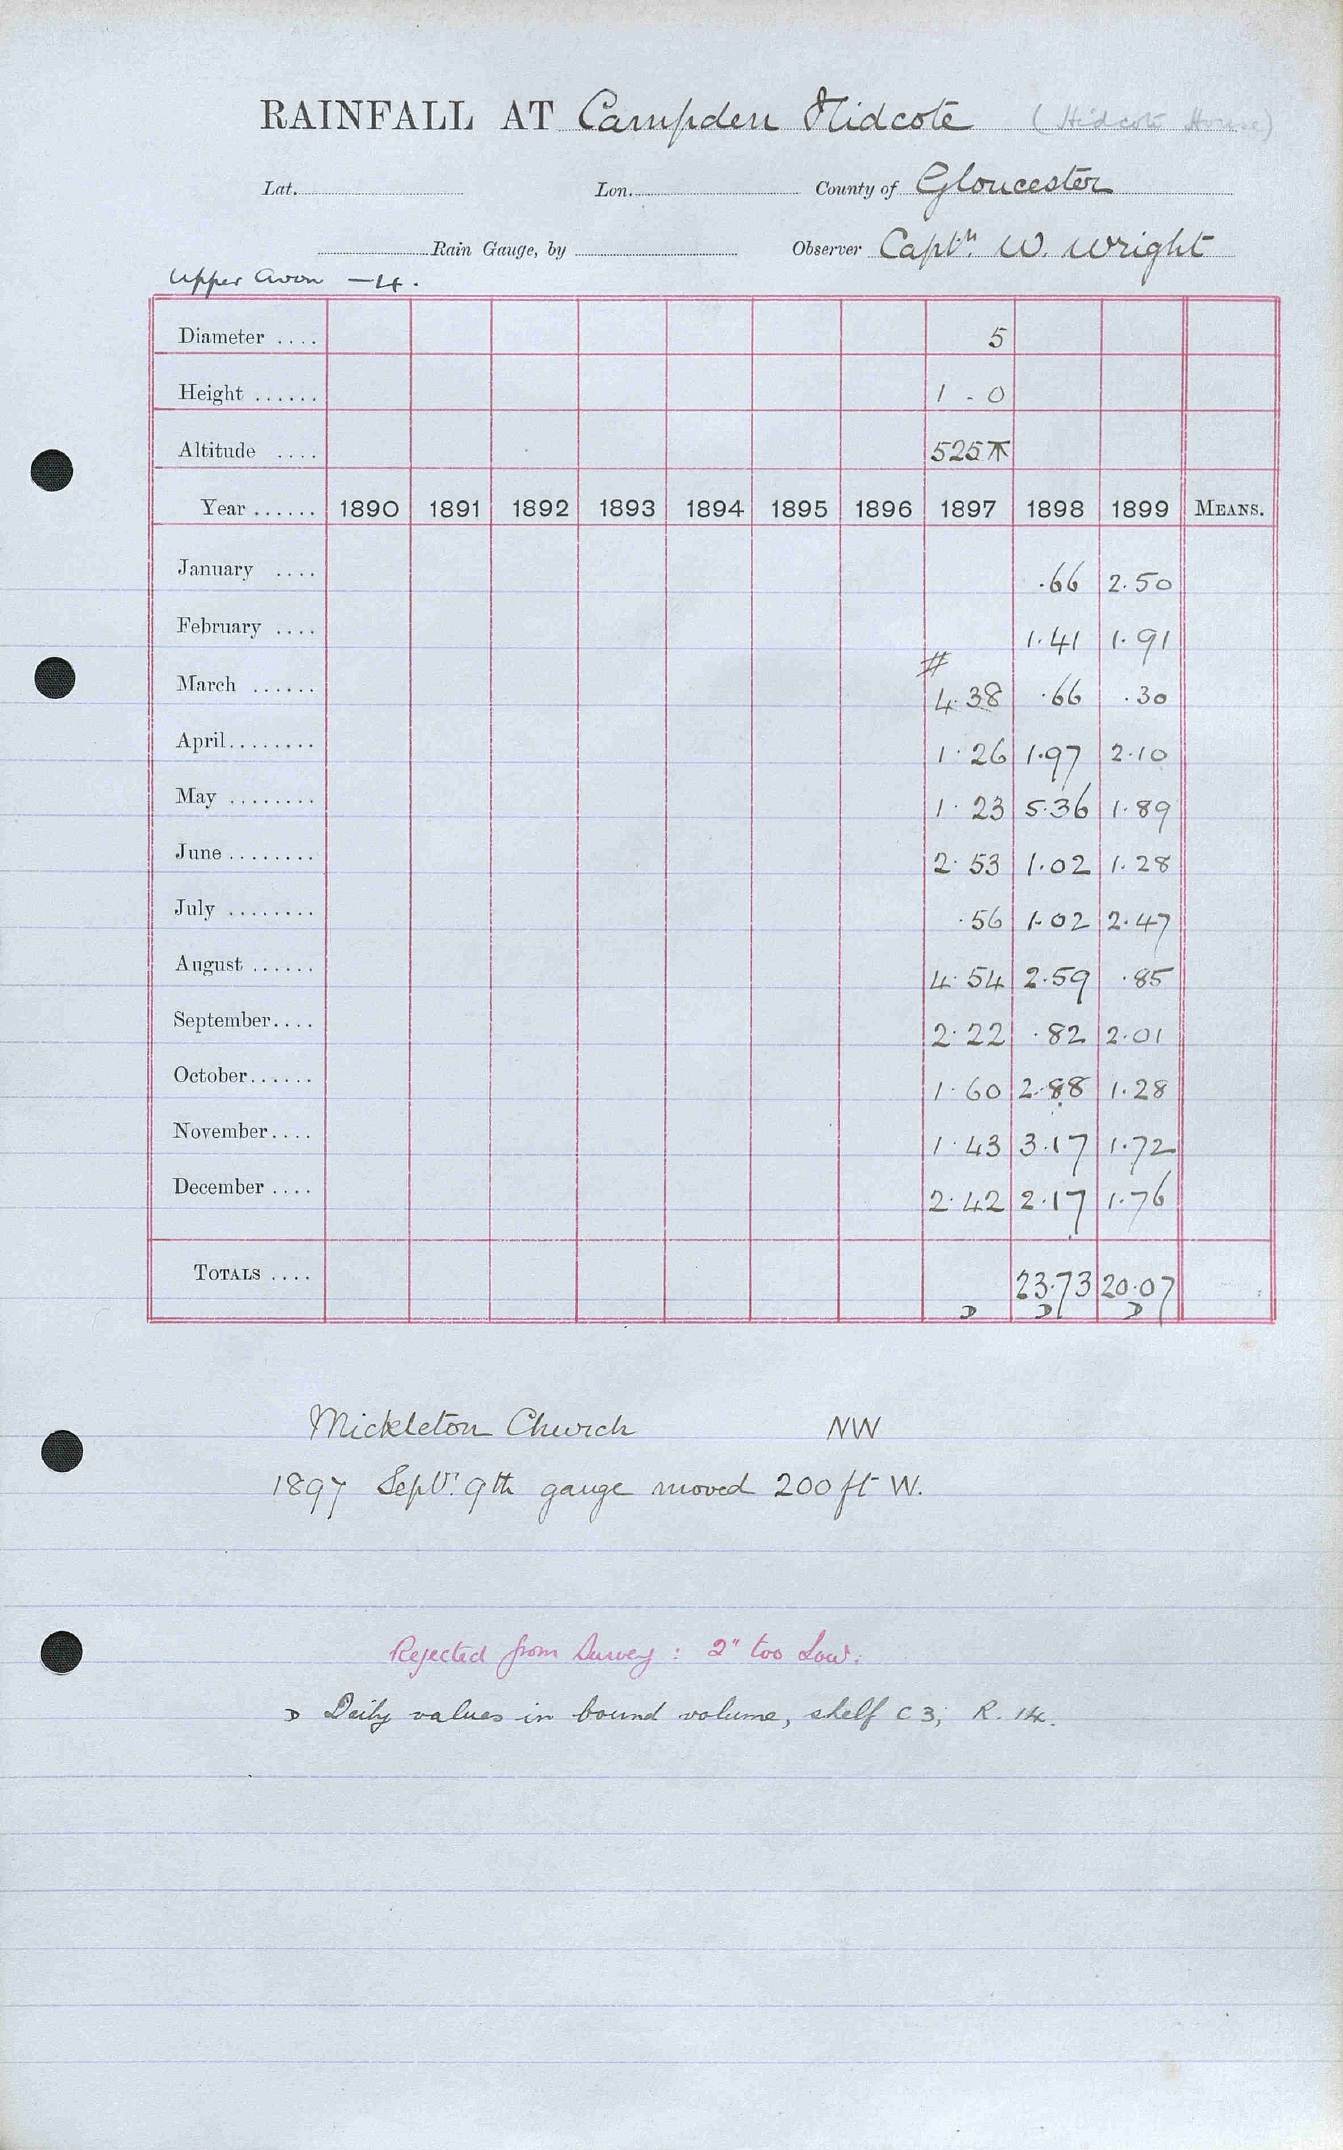 RAINFALL AT Campden Hidcote (Hidcote House)
Lat. Lon. County of Gloucester
Rain Gauge, by Observer Captn. W. Wright
Upper Avon — 4.
Diameter .... 5
Height ...... 1 - 0
Altitude .... 525
Year ...... 1890 1891 1892 1893 1894 1895 1896 1897 1898 1899 MEANS.
January .... .66 2.50
February .... 1.41 1.91
#
March ...... 4.38 .66 .30
April........ 1.26 1.97 2.10
May ........ 1.23 5.36 1.89
June ........ 2.53 1.02 1.28
July ........ .56 1.02 2.47
August ...... 4.54 2.59 .85
September.... 2.22 .82 2.01
October...... 1.60 2.88 1.28
November.... 1.43 3.17 1.72
December .... 2.42 2.17 1.76
TOTALS .... 23.73 20.07
D D D
Mickleton Church NW
1897 Sept. 9th gauge moved 200 ft W.
Rejected from Survey : 2" too Low.
D Daily values in bound volume, shelf C 3, R. 14.